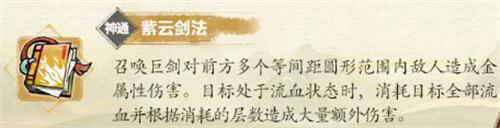 神通 紫云剑法
召唤巨剑对前方多个等间距圆形范围内敌人造成金
属性伤害。目标处于流血状态时，消耗目标全部流
血并根据消耗的层数造成大量额外伤害。